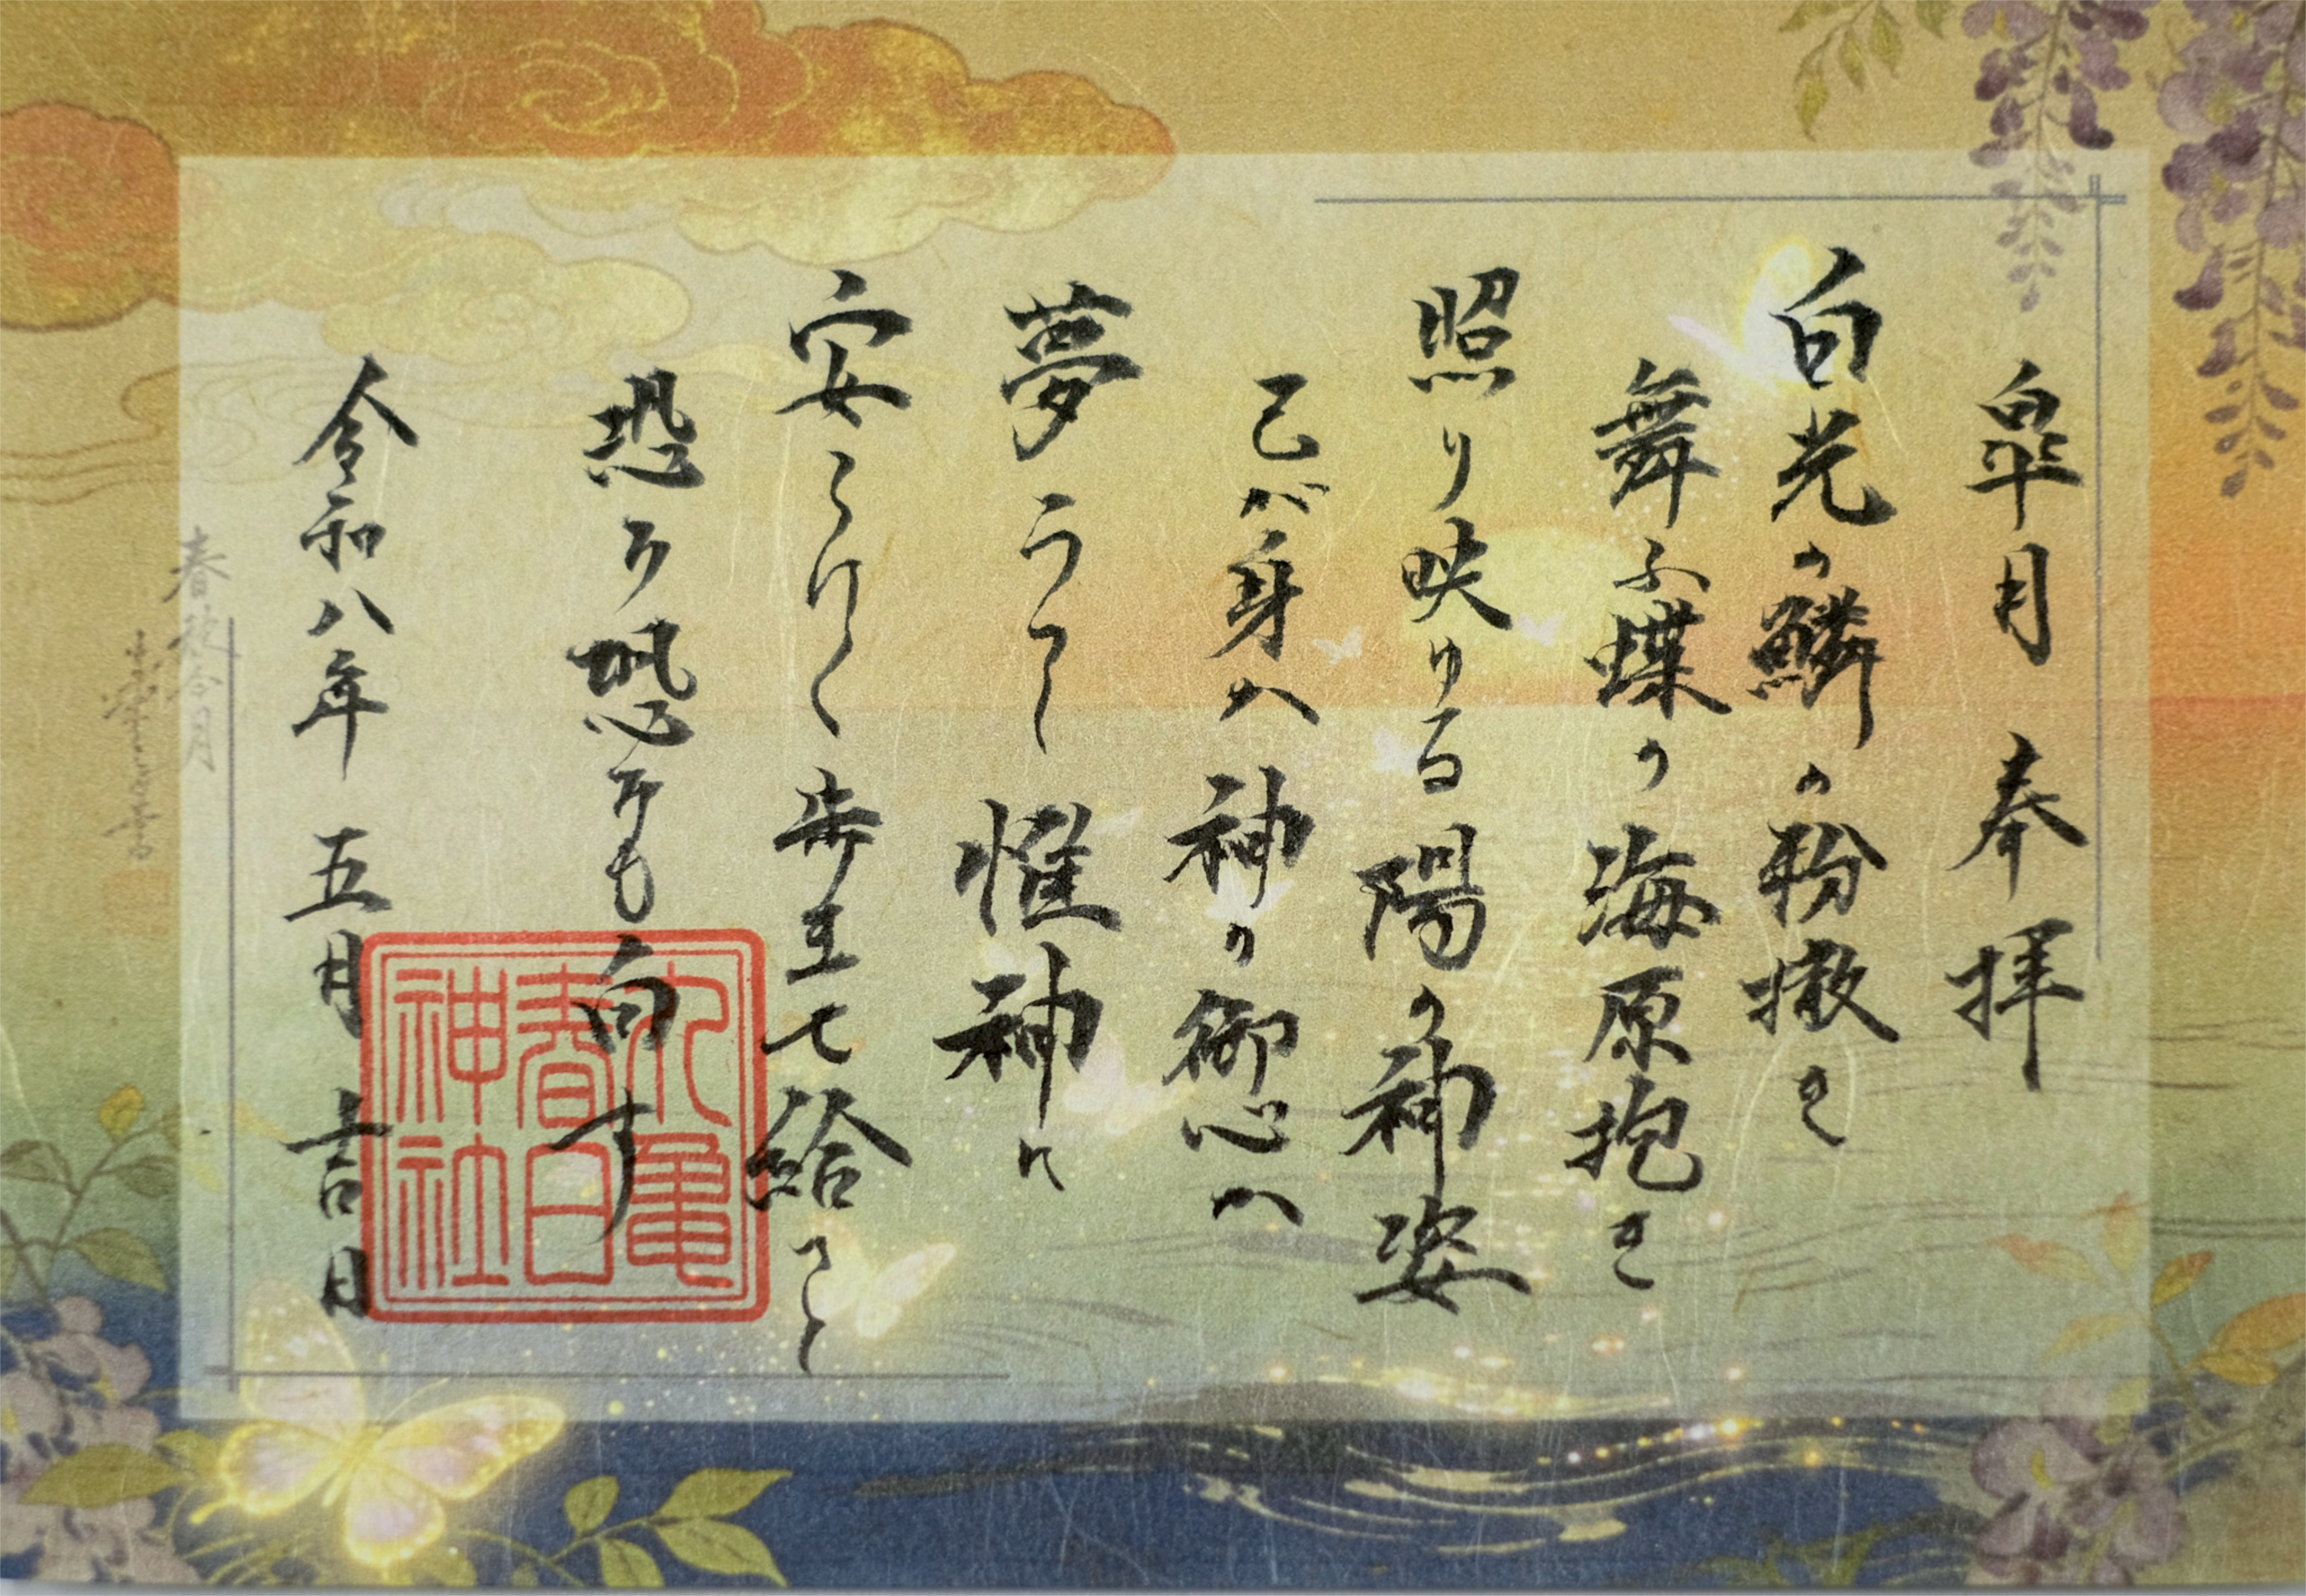 皐月 奉拝
白光の鱗の粉撒き
舞ふ蝶の海原抱き
照り映ゆる陽の神姿
己が身ハ神の御心ハ
夢うつし惟神に
安らけく歩ませ給
恐み恐みも白す
令和八年 五月 吉日
丸亀
春日
神社